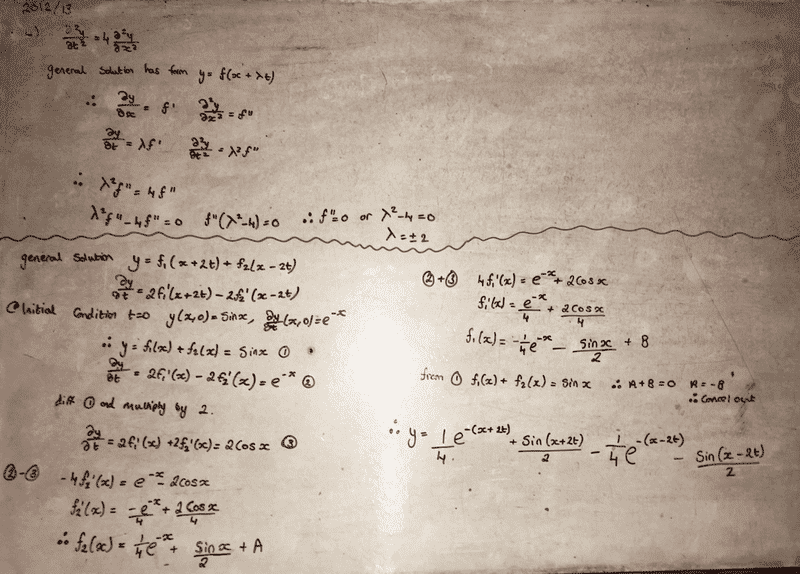 2012/13
4) ∂²y/∂t² = 4 ∂²y/∂x²
general solution has form y = f(x + λt)
∴ ∂y/∂x = f' ∂²y/∂x² = f''
∂y/∂t = λf' ∂²y/∂t² = λ²f''
∴ λ²f'' = 4f''
λ²f'' - 4f'' = 0 f''(λ²-4) = 0 ∴ f''=0 or λ²-4=0
λ = ±2
general solution y = f₁(x+2t) + f₂(x-2t)
∂y/∂t = 2f₁'(x+2t) - 2f₂'(x-2t)
@ Initial Condition t=0 y(x,0) = Sinx, ∂y/∂t(x,0) = e^-x
∴ y = f₁(x) + f₂(x) = Sinx ①
∂y/∂t = 2f₁'(x) - 2f₂'(x) = e^-x ②
diff ① and multiply by 2.
∂y/∂t = 2f₁'(x) + 2f₂'(x) = 2Cosx ③
②-③ -4f₂'(x) = e^-x - 2Cosx
f₂'(x) = -e^-x/4 + 2Cosx/4
∴ f₂(x) = 1/4 e^-x + Sinx/2 + A
②+③ 4f₁'(x) = e^-x + 2Cosx
f₁'(x) = e^-x/4 + 2Cosx/4
f₁(x) = -1/4 e^-x - Sinx/2 + B
from ① f₁(x) + f₂(x) = Sinx ∴ A+B=0 A=-B
∴ Cancel out
∴ y = 1/4 e^-(x+2t) + Sin(x+2t)/2 - 1/4 e^-(x-2t) - Sin(x-2t)/2